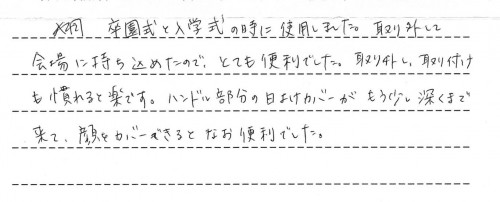 卒園式と入学式の時に使用しました。取り外して
会場に持ち込めたので、とても便利でした。取り外し、取り付け
も慣れると楽です。ハンドル部分の日よけカバーがもう少し深くまで
来て、顔をカバーできるとなお便利でした。